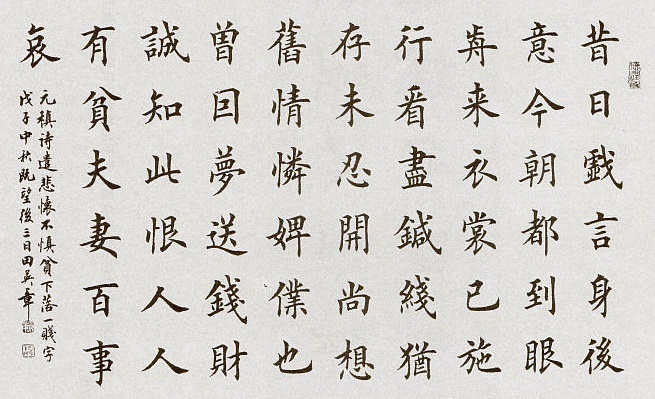 昔日戲言身後
意今朝都到眼
歬来衣裳已施
行看盡鍼綫猶
存未忍開尚想
舊情憐婢僕也
曾因夢送錢財
誠知此恨人人
有貧夫妻百事
哀
元稹诗遣悲懷不慎貧下落一賤字
戊子中秋既望後三日田英章